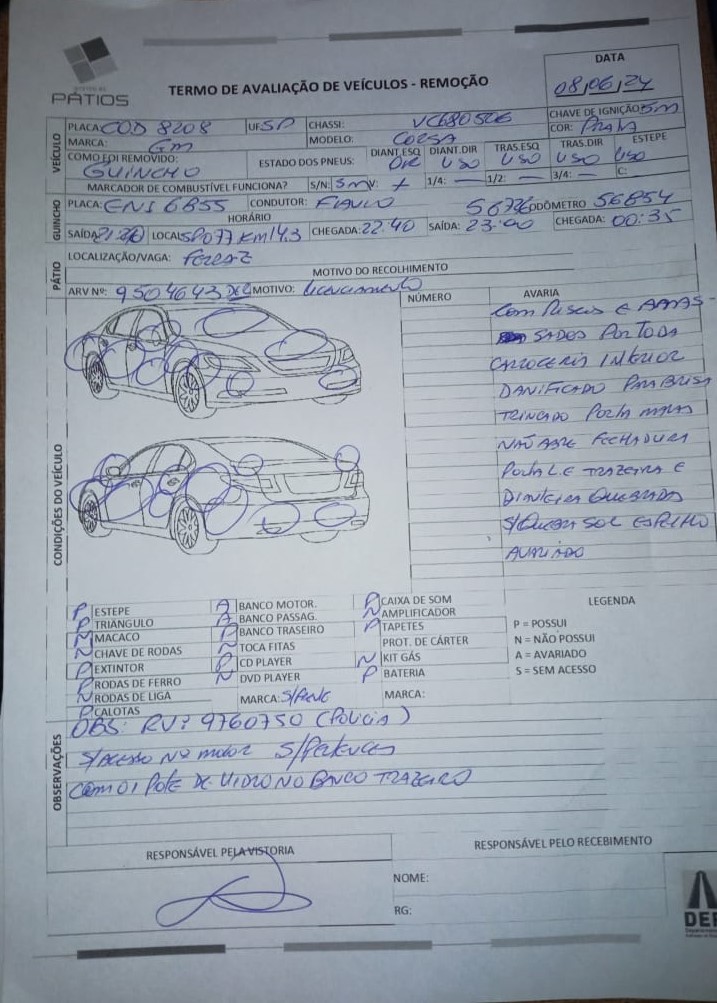 PÁTIOS
TERMO DE AVALIAÇÃO DE VEÍCULOS - REMOÇÃO
DATA
08,06,24
VEÍCULO
PLACA: COD 8208 UF: SP CHASSI: VC680506 CHAVE DE IGNIÇÃO: SIM
MARCA: GM MODELO: CORSA COR: PRATA
COMO FOI REMOVIDO: GUINCHO ESTADO DOS PNEUS: DIANT.ESQ DIANT.DIR USO TRAS.ESQ USO TRAS.DIR USO ESTEPE USO
MARCADOR DE COMBUSTÍVEL FUNCIONA? S/N: SIM V: + 1/4: — 1/2: — 3/4: — C:
GUINCHO
PLACA: ENI 6B55 CONDUTOR: FLAVIO ODÔMETRO 56854
HORÁRIO
SAÍDA LOCAL SP077 KM 143 CHEGADA: 22:40 SAÍDA: 23:00 CHEGADA: 00:35
PÁTIO
LOCALIZAÇÃO/VAGA:
MOTIVO DO RECOLHIMENTO
ARV Nº: 9504643 MOTIVO: licenciamento
CONDIÇÕES DO VEÍCULO
NÚMERO AVARIA
COM RISCOS E AMAS-
SADOS POR TODA
CARROCERIA INTERIOR
DANIFICADO PARABRISA
TRINCADO PORTA MALAS
NÃO ABRE FECHADURA
PORTA L.E TRAZEIRA E
DIANTEIRA QUEBRADA
S/QUEBRA SOL ESPELHO
AVARIADO
P ESTEPE A BANCO MOTOR. P CAIXA DE SOM LEGENDA
P TRIÂNGULO A BANCO PASSAG. N AMPLIFICADOR
N MACACO P BANCO TRASEIRO P TAPETES P = POSSUI
N CHAVE DE RODAS N TOCA FITAS PROT. DE CÁRTER N = NÃO POSSUI
P EXTINTOR P CD PLAYER N KIT GÁS A = AVARIADO
P RODAS DE FERRO N DVD PLAYER P BATERIA S = SEM ACESSO
N RODAS DE LIGA MARCA: MARCA:
P CALOTAS
OBSERVAÇÕES
OBS: RV: 9760750 (POLICIA)
S/ACESSO Nº MOTOR S/PERTENCES
COM 01 POTE DE VIDRO NO BANCO TRAZEIRO
RESPONSÁVEL PELA VISTORIA RESPONSÁVEL PELO RECEBIMENTO
NOME:
RG: